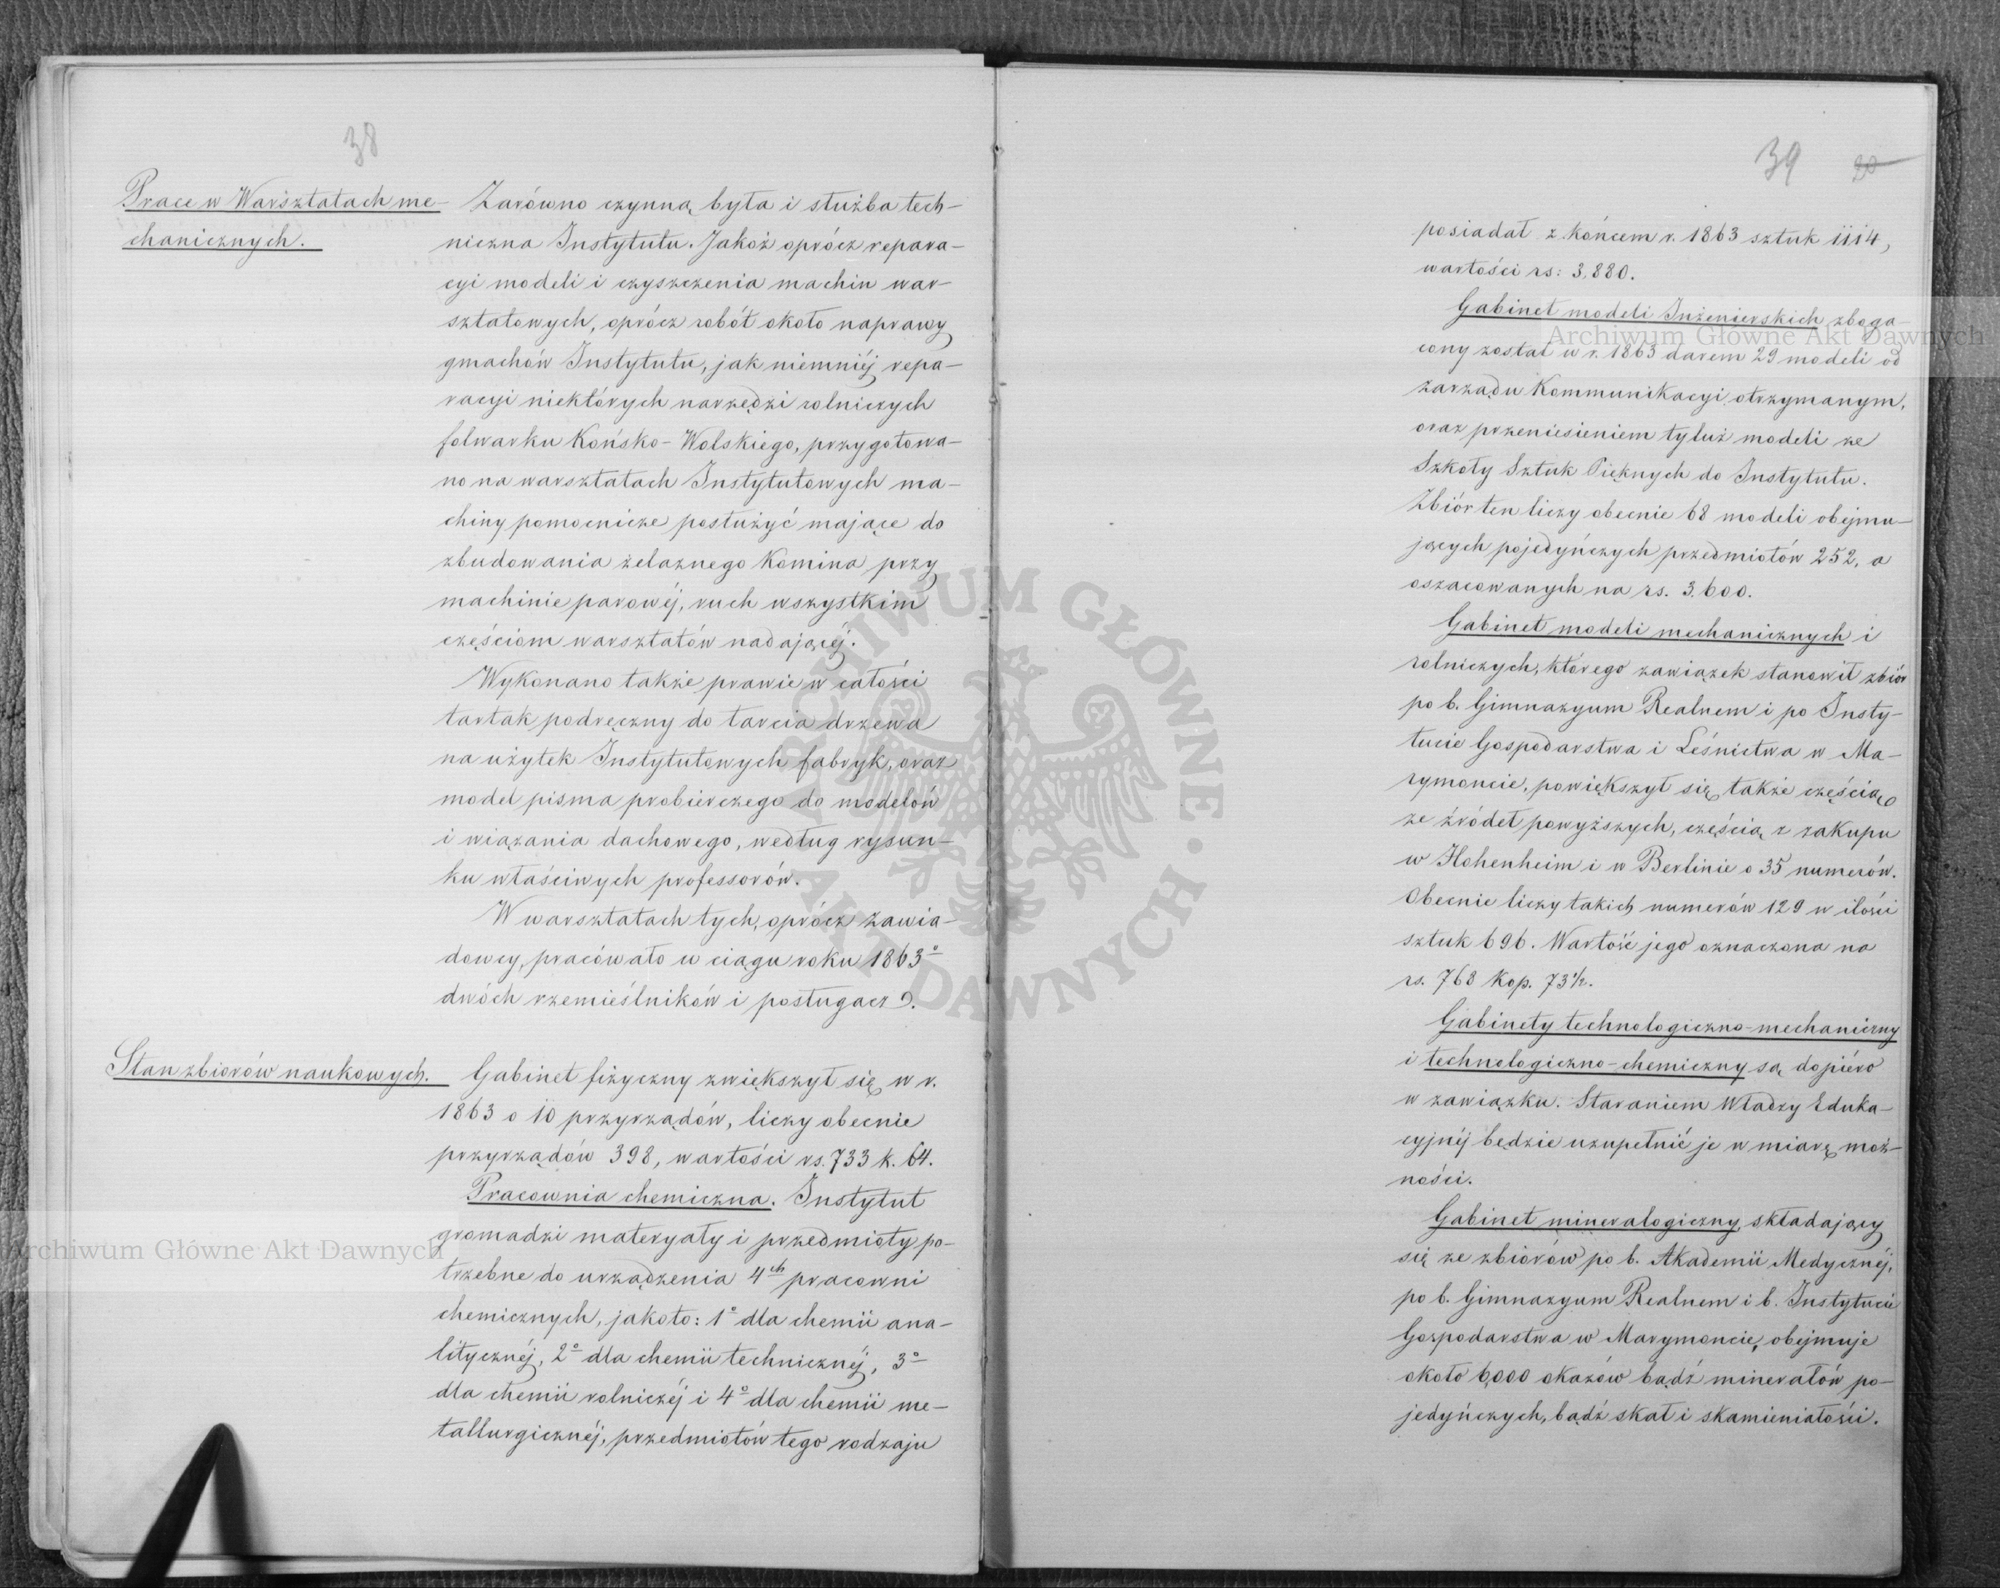 38
Prace w Warsztatach me-
chanicznych.
Zarówno czynną była i służba tech-
niczna Instytutu. Jakoż oprócz repara-
cyi modeli i czyszczenia machin war-
sztatowych, oprócz robót około naprawy
gmachów Instytutu, jak niemniéj repa-
racyi niektórych narzędzi rolniczych
folwarku Końsko-Wolskiego, przygotowa-
no na warsztatach Instytutowych ma-
chiny pomocnicze posłużyć mające do
zbudowania żelaznego Komina przy
machinie parowéj, ruch wszystkim
częściom warsztatów nadającéj.
Wykonano także prawie w całości
tartak podręczny do tarcia drzewa
na użytek Instytutowych fabryk, oraz
model pisma probierczego do modelów
i wiązania dachowego, według rysun-
ku właściwych professorów.
W warsztatach tych, oprócz zawia-
dowcy, pracówało w ciągu roku 1863º
dwóch rzemieślników i posługacz.
Stan zbiorów naukowych.
Gabinet fizyczny zwiększył się w r.
1863 o 10 przyrządów, liczy obecnie
przyrządów 398, wartości rs. 733 k. 64.
Pracownia chemiczna. Instytut
gromadzi materyały i przedmioty po-
trzebne do urządzenia 4ch pracowni
chemicznych, jakoto: 1º dla chemii ana-
litycznéj, 2º dla chemii technicznéj, 3º
dla chemii rolniczéj i 4º dla chemii me-
tallurgicznéj, przedmiotów tego rodzaju
39 20
posiadał z końcem r. 1863 sztuk 1114,
wartości rs: 3,880.
Gabinet modeli Inżenierskich zboga-
cony został w r. 1863 darem 29 modeli od
zarządu Kommunikacyi otrzymanym,
oraz przeniesieniem tyluż modeli ze
Szkoły Sztuk Pięknych do Instytutu.
Zbiór ten liczy obecnie 68 modeli obejmu-
jących pojedyńczych przedmiotów 252, a
oszacowanych na rs. 3,600.
Gabinet modeli mechanicznych i
rolniczych, którego zawiązek stanowił zbiór
po b. Gimnazyum Realnem i po Insty-
tucie Gospodarstwa i Leśnictwa w Ma-
rymoncie, powiększył się także częścią
ze źródeł powyższych, częścią z zakupu
w Hohenheim i w Berlinie o 35 numerów.
Obecnie liczy takich numerów 129 w ilości
sztuk 696. Wartość jego oznaczona na
rs. 768 kop. 73½.
Gabinety technologiczno-mechaniczny
i technologiczno-chemiczny są dopiéro
w zawiązku. Staraniem Władzy Eduka-
cyjnéj będzie uzupełnić je w miarę moż-
ności.
Gabinet mineralogiczny, składający
się ze zbiorów po b. Akademii Medycznéj,
po b. Gimnazyum Realnem i b. Instytucie
Gospodarstwa w Marymoncie, obejmuje
około 6,000 okazów bądź minerałów po-
jedyńczych, bądź skał i skamieniałości.
Archiwum Główne Akt Dawnych
Archiwum Główne Akt Dawnych
ARCHIWUM GŁÓWNE · AKT DAWNYCH ·